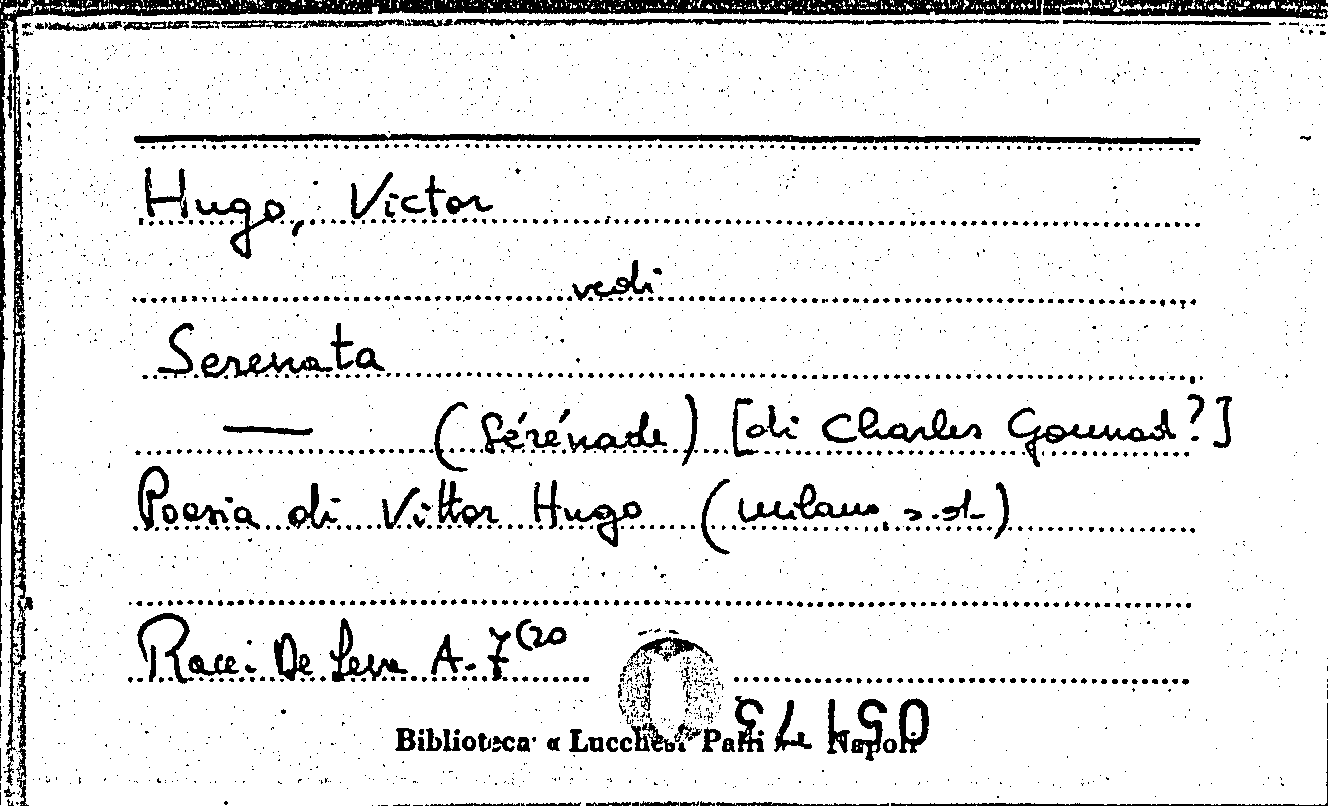 Hugo, Victor
vedi
Serenata
— (Sérénade) [di Charles Gounod?]
Poesia di Vittor Hugo (Milano, s.d.)
Racc. De Leva A. 7(20
Biblioteca « Lucchesi Palli » - Napoli